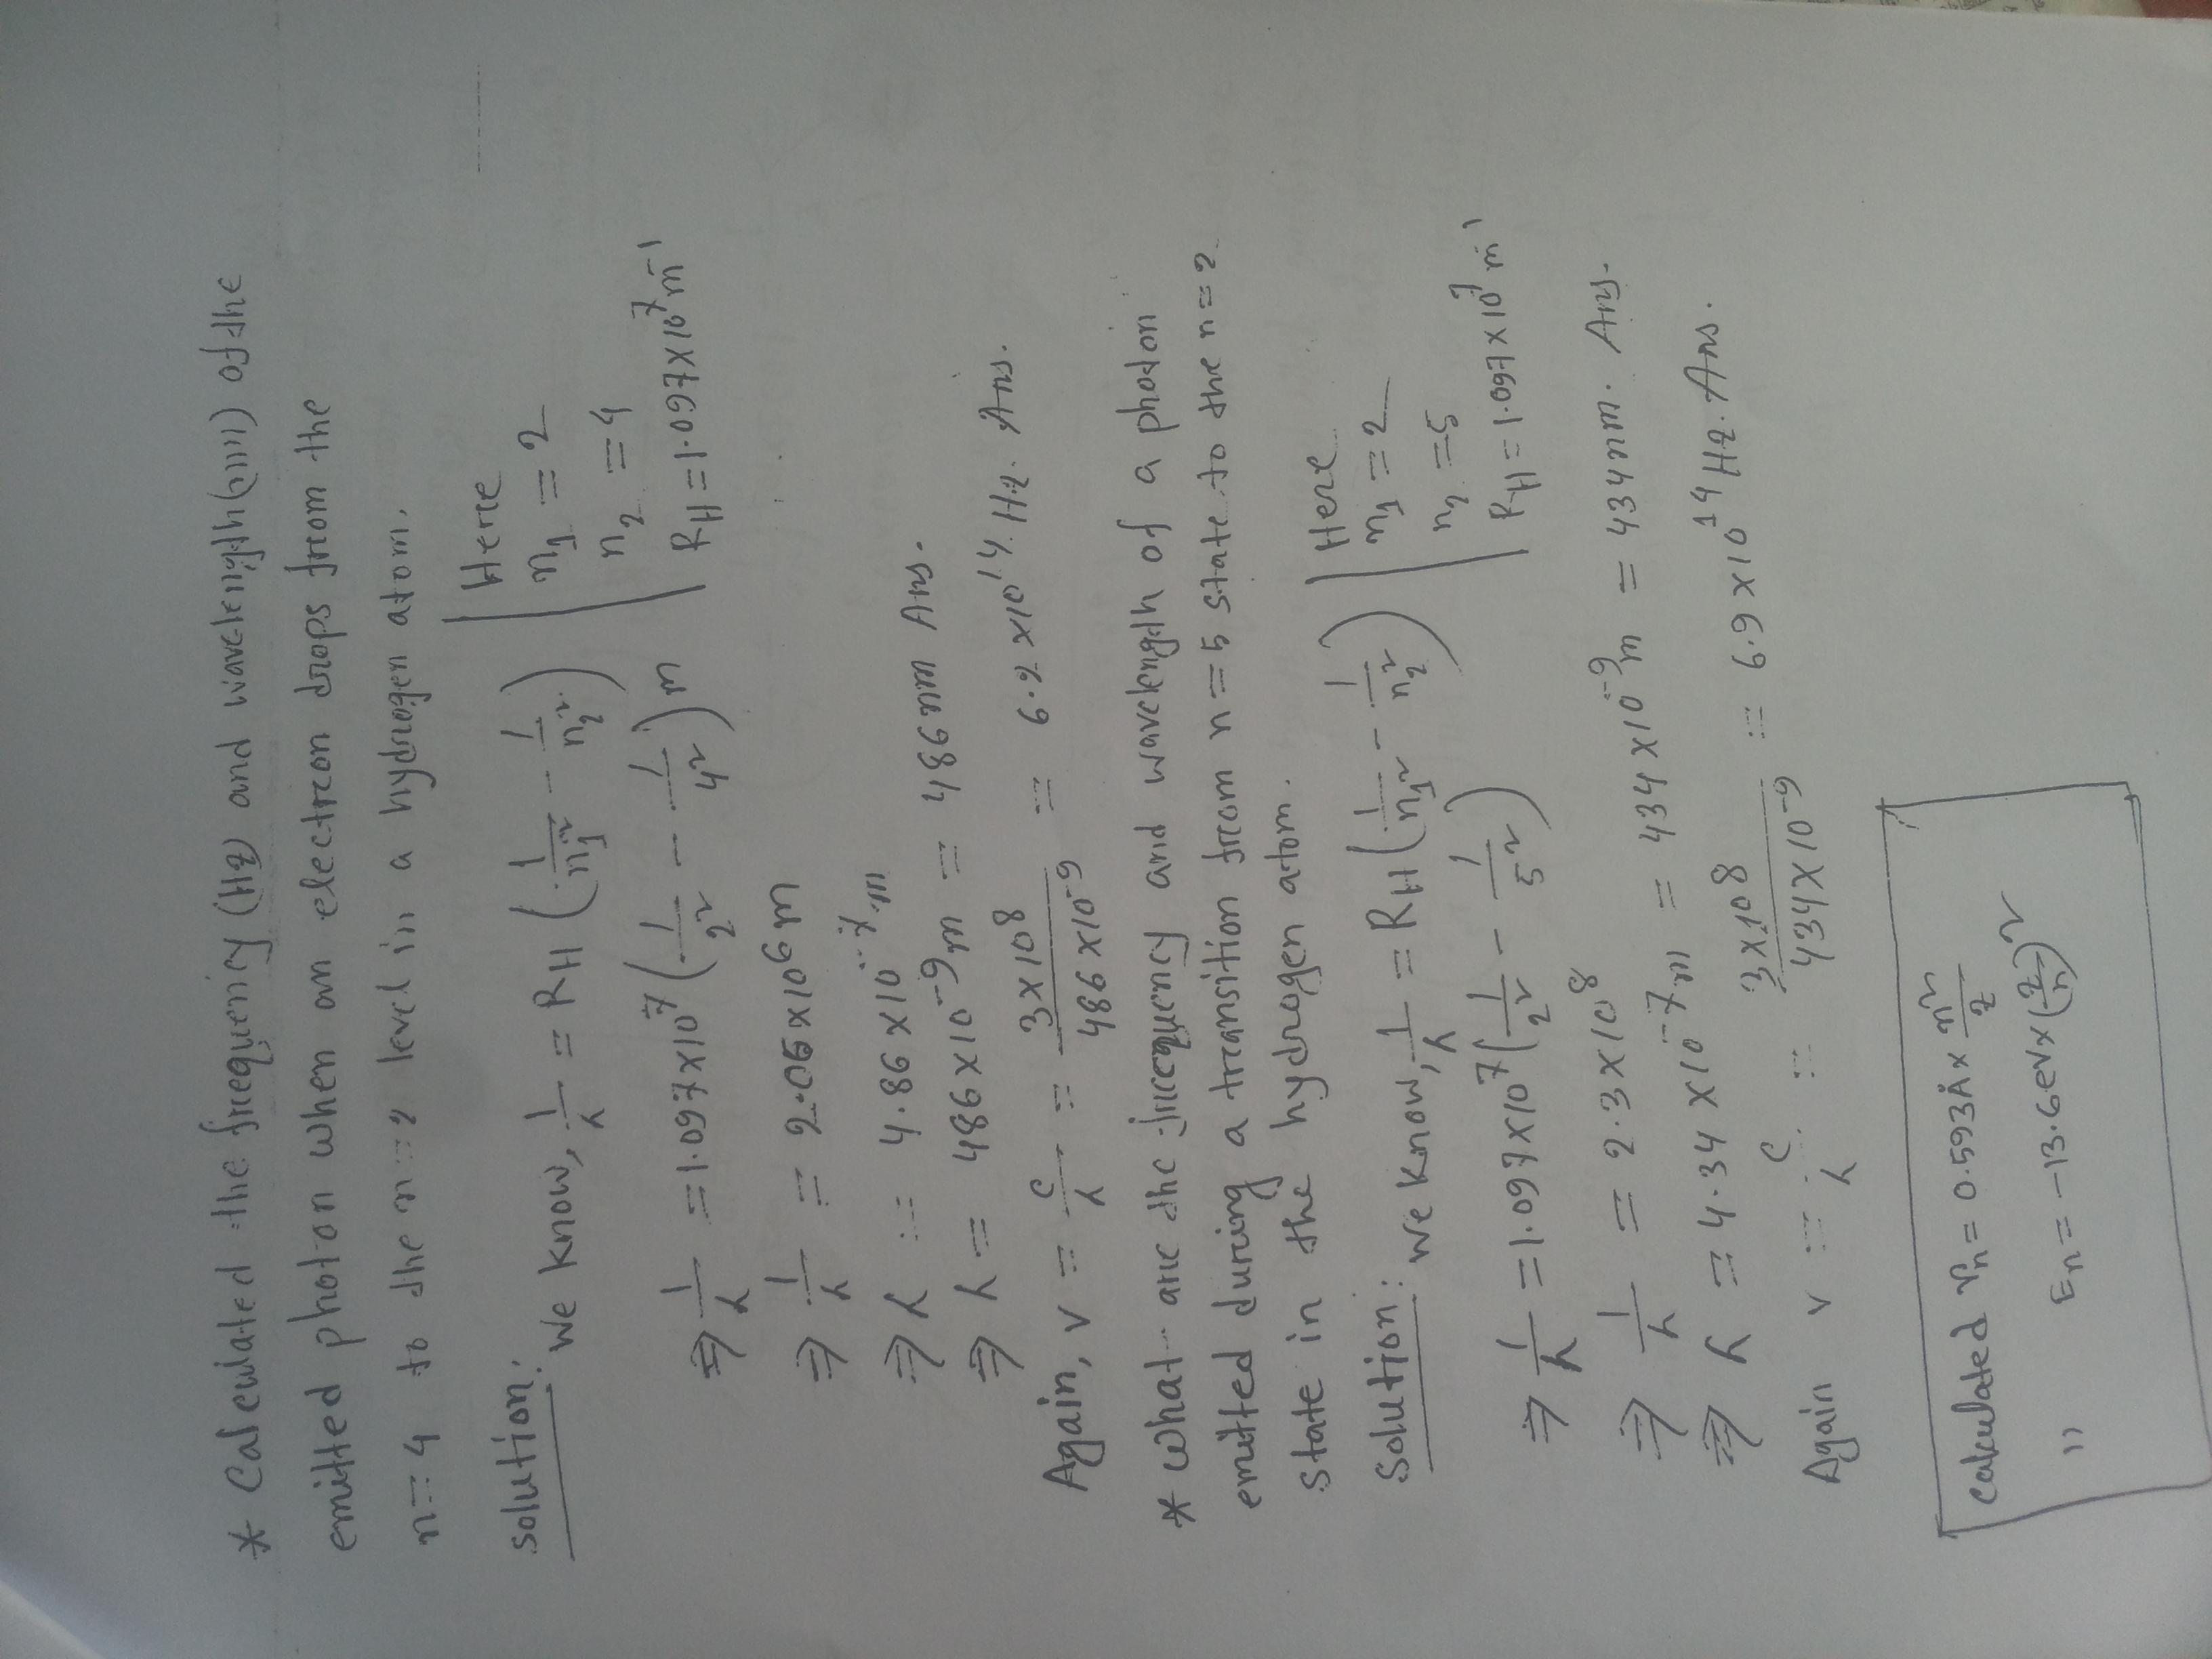 * Calculated the frequency (Hz) and wavelength (nm) of the
emitted photon when an electron drops from the
n=4 to the n=2 level in a hydrogen atom.
Solution: We know, 1/λ = RH (1/n₁² - 1/n₂²) | Here n₁ = 2
n₂ = 4
⇒ 1/λ = 1.097×10⁷ (1/2² - 1/4²) m | RH = 1.097×10⁷ m⁻¹
⇒ 1/λ = 2.06×10⁶ m
⇒ λ = 4.86×10⁻⁷ m
⇒ λ = 486×10⁻⁹ m = 486 nm Ans.
Again, v = c/λ = 3×10⁸/486×10⁻⁹ = 6.2×10¹⁴ Hz. Ans.
* What are the frequency and wavelength of a photon
emitted during a transition from n=5 state to the n=2
state in the hydrogen atom.
Solution: We know, 1/λ = RH (1/n₁² - 1/n₂²) | Here n₁ = 2
n₂ = 5
⇒ 1/λ = 1.097×10⁷ (1/2² - 1/5²) | RH = 1.097×10⁷ m⁻¹
⇒ 1/λ = 2.3×10⁸
⇒ λ = 4.34×10⁻⁷ m = 434×10⁻⁹ m = 434 nm. Ans.
Again v = c/λ = 3×10⁸/434×10⁻⁹ = 6.9×10¹⁴ Hz. Ans.
Calculated rn = 0.593Å × n²/z
" En = -13.6 eV × (z/n)²